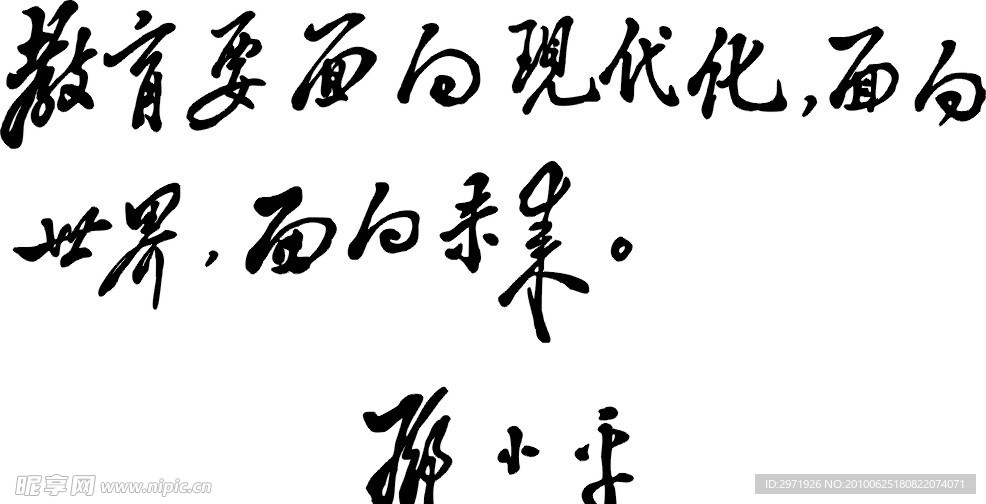 教育要面向现代化,面向
世界,面向未来。
邓小平
昵享网 www.nipic.cn
ID:2971926 NO:20100625180822074071